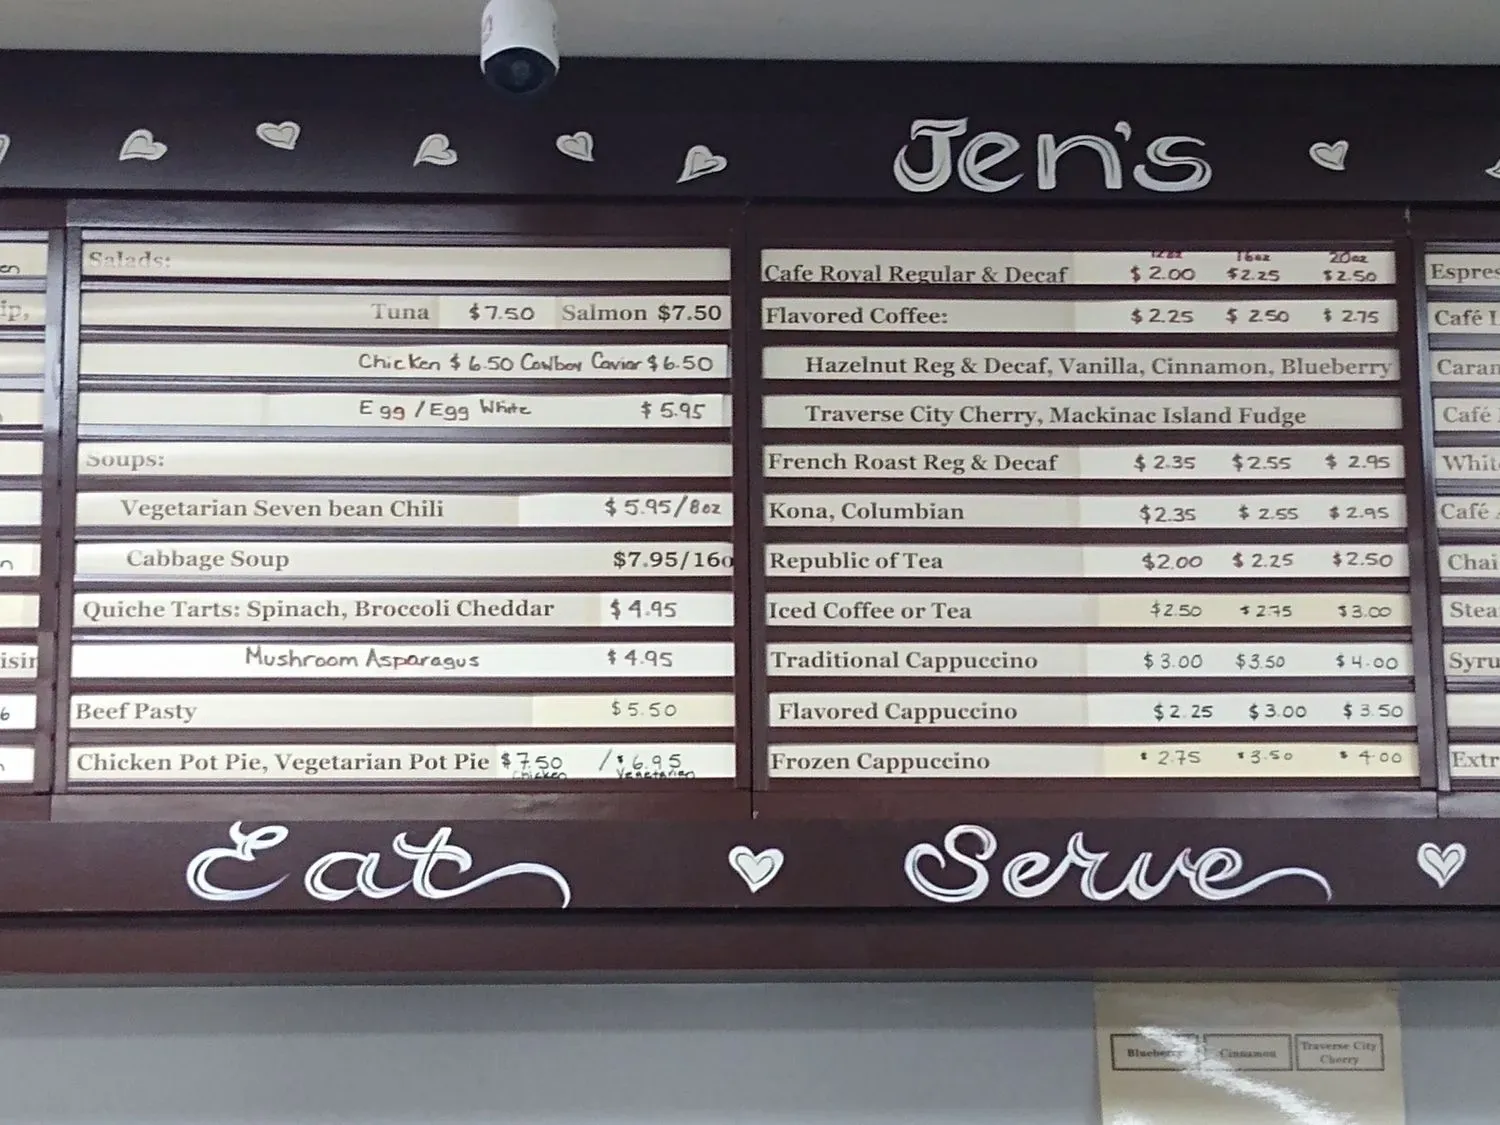 Jen's
en
ip,
isin
Salads:
Tuna $7.50 Salmon $7.50
Chicken $6.50 Cowboy Caviar $6.50
Egg / Egg White $5.95
Soups:
Vegetarian Seven bean Chili $5.95/8oz
Cabbage Soup $7.95/16o
Quiche Tarts: Spinach, Broccoli Cheddar $4.95
Mushroom Asparagus $4.95
Beef Pasty $5.50
Chicken Pot Pie, Vegetarian Pot Pie $7.50 / $6.95
Chicken Vegetarian
12oz 16oz 20oz
Cafe Royal Regular & Decaf $2.00 $2.25 $2.50
Flavored Coffee: $2.25 $2.50 $2.75
Hazelnut Reg & Decaf, Vanilla, Cinnamon, Blueberry
Traverse City Cherry, Mackinac Island Fudge
French Roast Reg & Decaf $2.35 $2.55 $2.95
Kona, Columbian $2.35 $2.55 $2.95
Republic of Tea $2.00 $2.25 $2.50
Iced Coffee or Tea $2.50 $2.75 $3.00
Traditional Cappuccino $3.00 $3.50 $4.00
Flavored Cappuccino $2.25 $3.00 $3.50
Frozen Cappuccino $2.75 $3.50 $4.00
Espres
Café L
Caran
Café
Whit
Café
Chai
Stea
Syru
Extr
Eat Serve
Blueberry Cinnamon Traverse City
Cherry